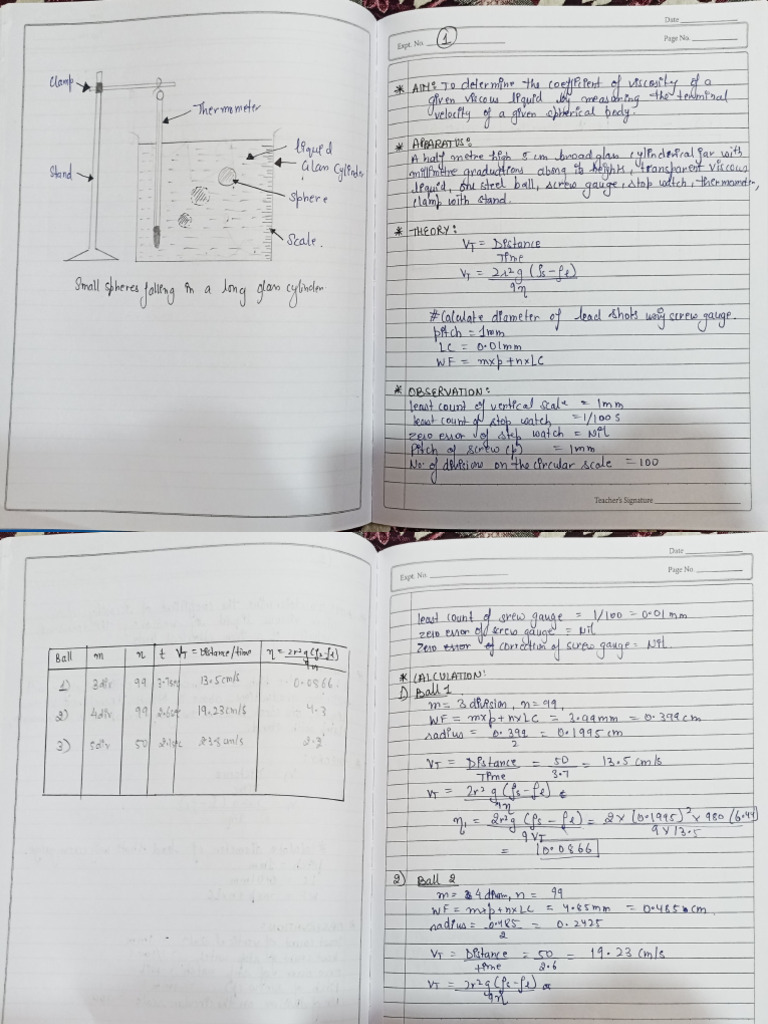 Clamp
Thermometer
liquid
Glass Cylinder
Stand
Sphere
Scale.
Small spheres falling in a long glass cylinder
Date
Expt. No. 1
Page No.
* AIM: To determine the coefficient of viscosity of a
given viscous liquid by measuring the terminal
velocity of a given spherical body.
* APPARATUS:
A half metre high 5 cm broad glass cylinderical jar with
millimetre graductions along its height, transparent viscous
liquid, one steel ball, screw gauge, stop watch, thermometer,
clamp with stand.
* THEORY:
VT = Distance
Time
VT = 2r²g (ρs-ρl)
9η
# Calculate diameter of lead shots using screw gauge.
pitch = 1mm
LC = 0.01mm
WF = m×p + n×LC
* OBSERVATION:
least count of vertical scale = 1mm
least count of stop watch = 1/100 S
zero error of stop watch = Nil
Pitch of screw (p) = 1mm
No. of divisions on the circular scale = 100
Teacher's Signature
Ball m n t VT = Distance/time η = 2r²g(ρs-ρl)
9η
1) 3div 99 3.7sec 13.5cm/s 0.0866
2) 4div 99 2.6sec 19.23cm/s 4.3
3) 5div 50 2.1sec 23.8cm/s
Date
Expt. No.
Page No.
least count of srew gauge = 1/100 = 0.01mm
zero error of screw gauge = Nil
Zero error of correction of screw gauge = Nil.
* CALCULATION:
1) Ball 1
m = 3 division, n = 99,
WF = m×p + n×LC = 3.99mm = 0.399 cm
radius = 0.399 = 0.1995 cm
2
VT = Distance = 50 = 13.5 cm/s
Time 3.7
VT = 2r² g (ρs-ρl)
9η
η1 = 2r²g (ρs-ρl) = 2×(0.1995)²×980 (6.44)
9VT 9×13.5
= 0.0866
2) Ball 2
m = 4 division, n = 99
WF = m×p+n×LC = 4.85mm = 0.485 cm
radius = 0.485 = 0.2425
2
VT = Distance = 50 = 19.23 cm/s
time 2.6
VT = 2r²g (ρs-ρl)
9η